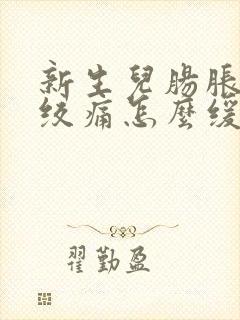 新生兒腸脹
絞痛怎麼緩
翟勤盈